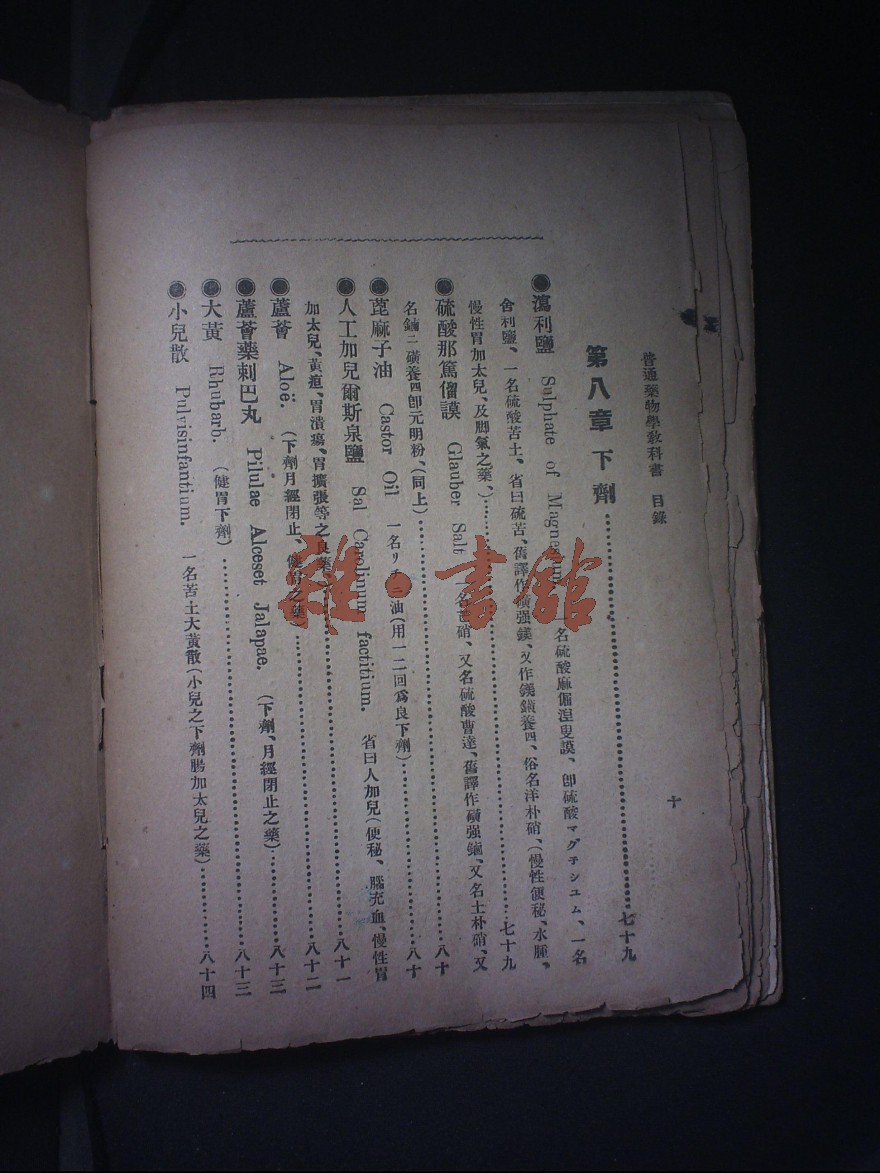 普通藥物學教科書 目錄
十
第八章 下劑……七十九
●瀉利鹽 Sulphate of Magnesium 一名硫酸麻倔涅叟謨、卽硫酸マグチシユム、一名
舍利鹽、一名硫酸苦土、省曰硫苦、舊譯作磺强鎂、又作鎂鑛養四、俗名洋朴硝、(慢性便秘、水腫、
慢性胃加太兒、及脚氣之藥、)……七十九
●硫酸那篤倔謨 Glauber Salt 一名芒硝、又名硫酸曹達、舊譯作磺强鏀、又名土朴硝、又
名鏀二磺養四卽元明粉、(同上)……八十
●蓖麻子油 Castor Oil 一名リチニ油(用一二回爲良下劑)……八十
●人工加兒爾斯泉鹽 Sal Carolinum factitium. 省曰人加兒(便秘、腦充血、慢性胃
加太兒、黃疸、胃潰瘍、胃擴張等之良藥)……八十一
●蘆薈 Aloë. (下劑月經閉止、健胃之藥)……八十二
●蘆薈藥剌巴丸 Pilulae Alceset Jalapae. (下劑、月經閉止之藥)……八十三
●大黃 Rhubarb. (健胃下劑)……八十三
●小兒散 Pulvisinfantium. 一名苦土大黃散(小兒之下劑腸加太兒之藥)……八十四
雜·書館